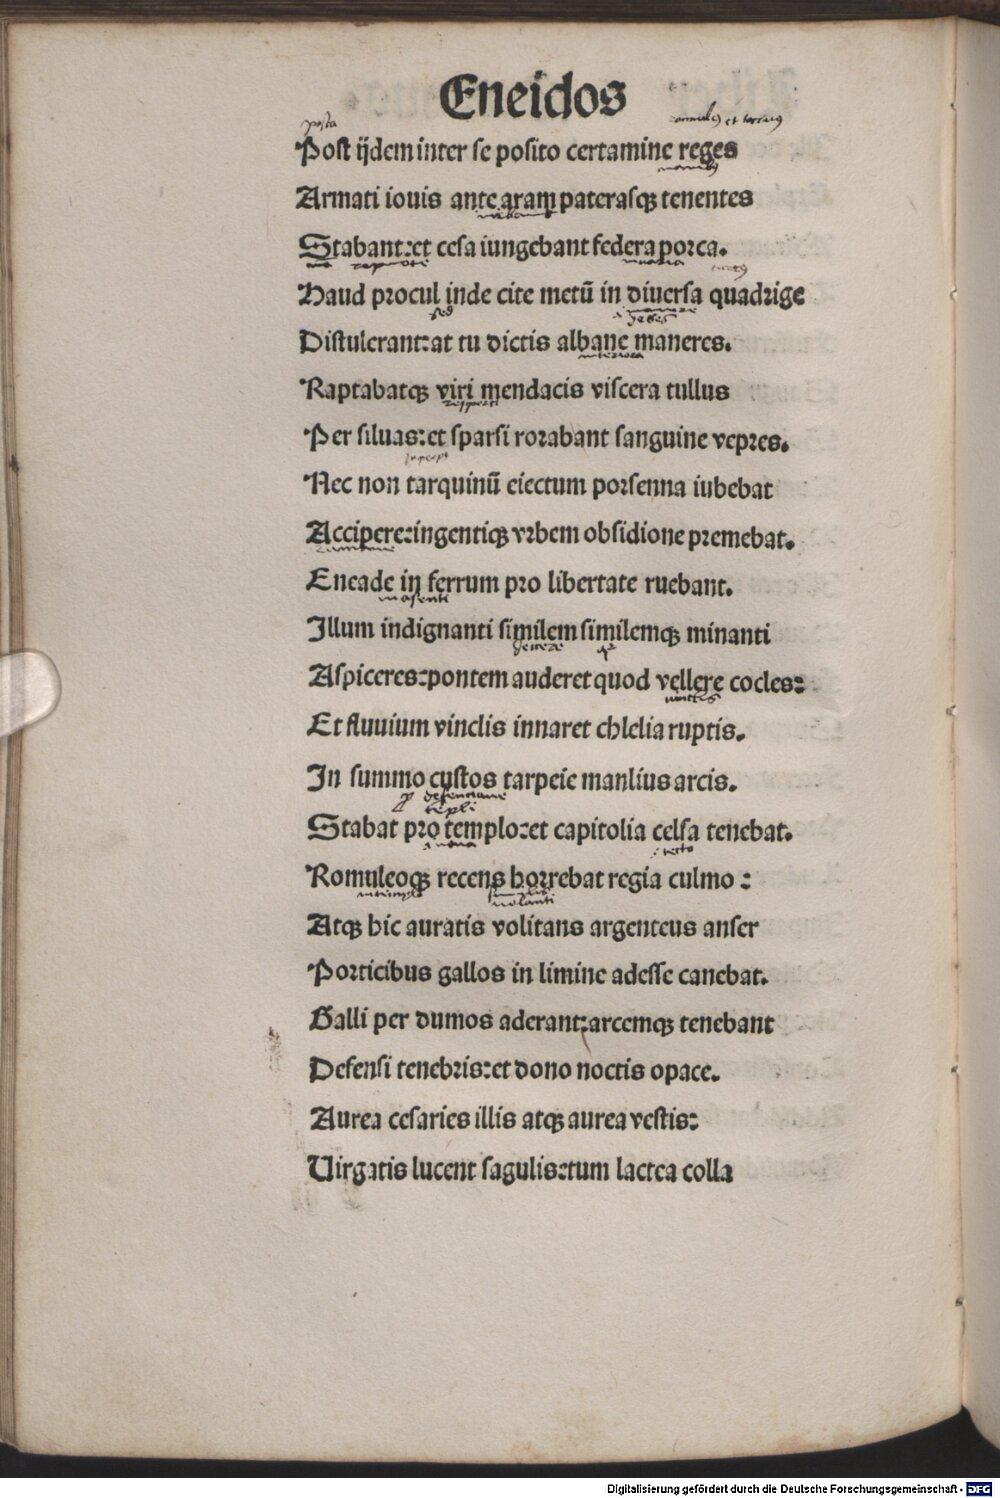 Eneidos
posta
romulus et tarcius
Post ijdem inter se posito certamine reges
manibus
Armati iouis ante aram paterasqꝫ tenentes
Stabant:et cesa iungebant federa porca.
Haud procul inde cite metū in diuersa quadrige
sed
Distulerant:at tu dictis albane maneres.
interiora
Raptabatqꝫ viri mendacis viscera tullus
Per siluas:et sparsi rorabant sanguine vepres.
Nec non tarquinū eiectum porsenna iubebat
Accipere:ingentiqꝫ vrbem obsidione premebat.
Eneade in ferrum pro libertate ruebant.
Illum indignanti similem similemqꝫ minanti
Aspiceres:pontem auderet quod vellere cocles:
Et fluuium vinclis innaret chlelia ruptis.
In summo custos tarpeie manlius arcis.
templi
Stabat pro templo:et capitolia celsa tenebat.
tecto
Romuleoqꝫ recens horrebat regia culmo :
volanti
Atqꝫ hic auratis volitans argenteus anser
Porticibus gallos in limine adesse canebat.
Galli per dumos aderant:arcemqꝫ tenebant
Defensi tenebris:et dono noctis opace.
Aurea cesaries illis atqꝫ aurea vestis:
Uirgatis lucent sagulis:tum lactea colla
Digitalisierung gefördert durch die Deutsche Forschungsgemeinschaft - DFG